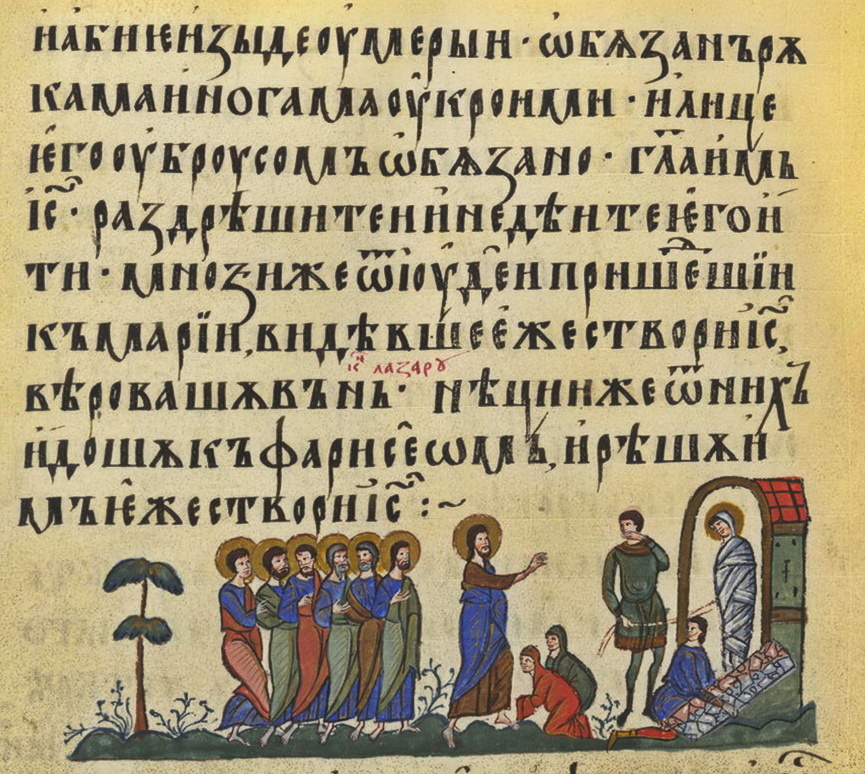 на́бїѥ и҆зыде ѹ҆мерꙑи · ѡ҆бѧзанъ рѫ
кама и҆ ногама ѹ҆кроими · и҆ лице
ѥ҆го ѹ҆броусомъ ѡ҆бѧзано · гл҃а и҆мь
і҆с҃ · раздрѣшите и҆ и҆ не дѣите ѥ҆го и҆
ти · мнозиже ѿ і҆ѹде́и пришеⷣшїи
къ марїи, видѣвшее҆же сътвори і҆с҃,
і҆с҃ лазарꙋ
вѣровашѫ въ нь · нѣциижеѿ нихъ
и҆дошѫ къ фарисе́ѡмъ, и҆ рѣшѫ и҆
мъ ѥ҆же створи і҆с҃ :~